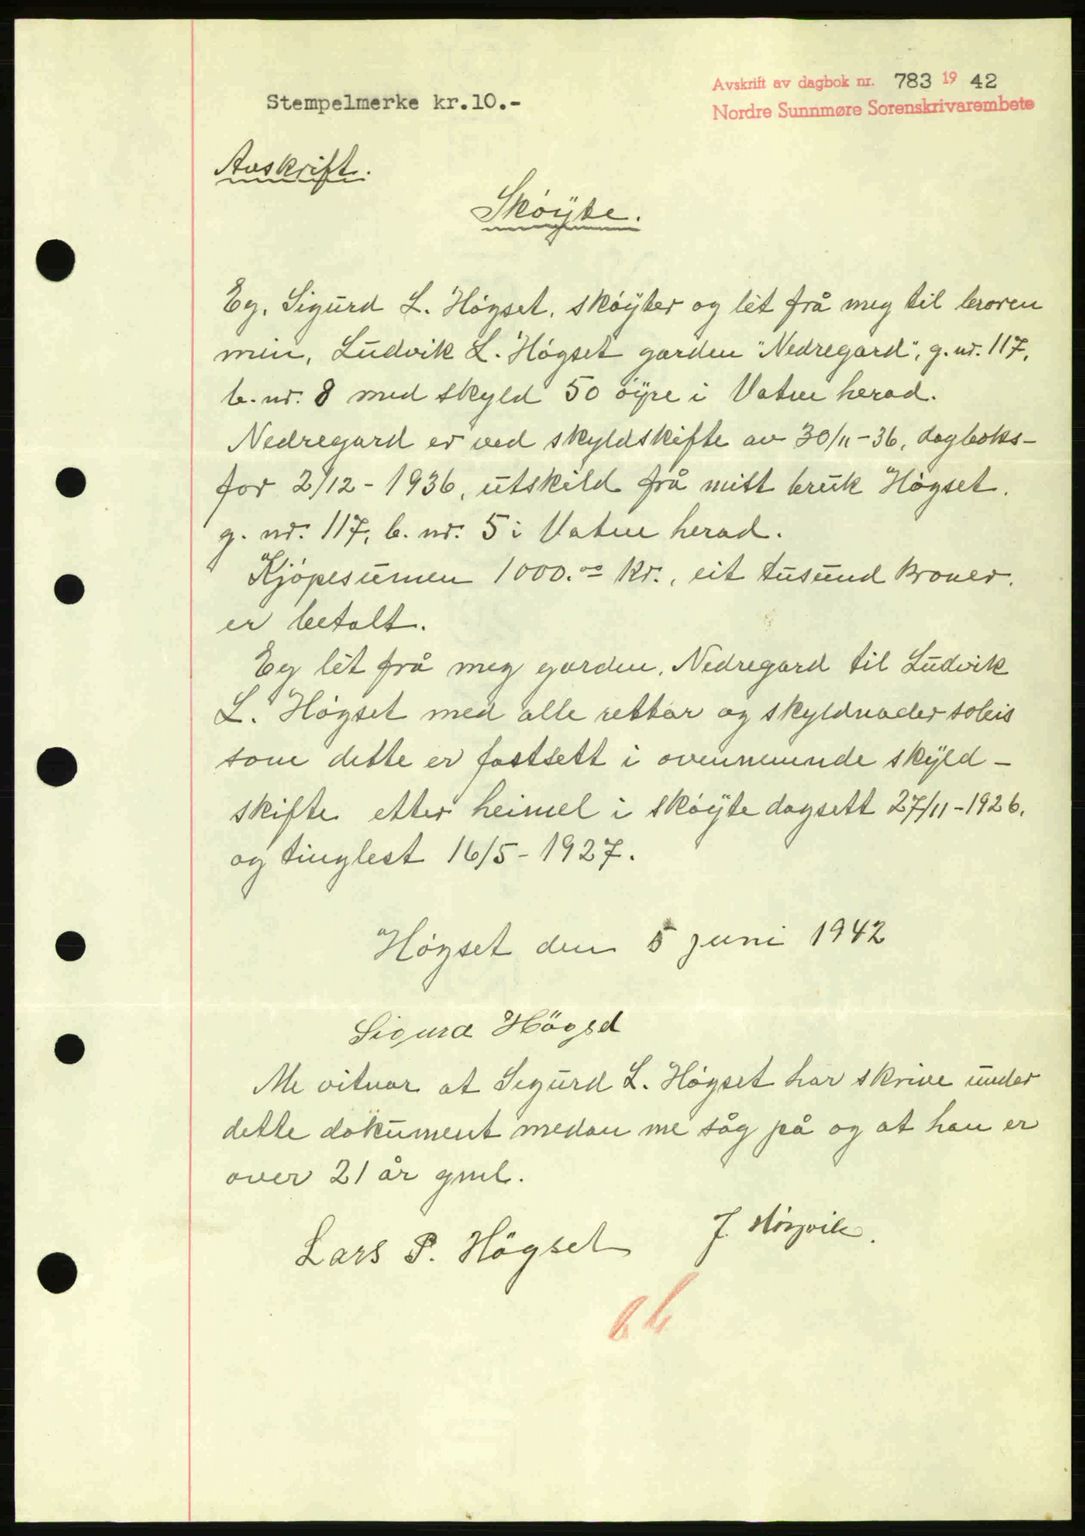 Avskrift av dagbok nr. 783 1942
Stempelmerke kr.10.-
Nordre Sunnmøre Sorenskrivarembete
Avskrift.
Skøyte.
Eg, Sigurd L. Høgset, skøyter og lèt frå meg til broren
min, Ludvik L. Høgset garden "Nedregard", g.nr. 117,
b.nr. 8 med skyld 50 øyre i Vatne herad.
Nedregard er ved skyldskifte av 30/11-36, dagboks-
før 2/12-1936, utskild frå mitt bruk Høgset.
g. nr. 117, b. nr. 5 i Vatne herad.
Kjøpesumen 1000.00 kr., eit tusund kroner,
er betalt.
Eg lèt frå meg garden, Nedregard til Ludvik
L. Høgset med alle rettar og skyldnader soleis
som dette er fastsett i ovennemnde skyld-
skifte etter heimel i skøyte dagsett 27/11-1926,
og tinglest 16/5-1927.
Høgset den 5 juni 1942
Sigurd Högset
Me vitnar at Sigurd L. Høgset har skrive under
dette dokument medan me såg på og at han er
over 21 år gml.
Lars P. Högset J.